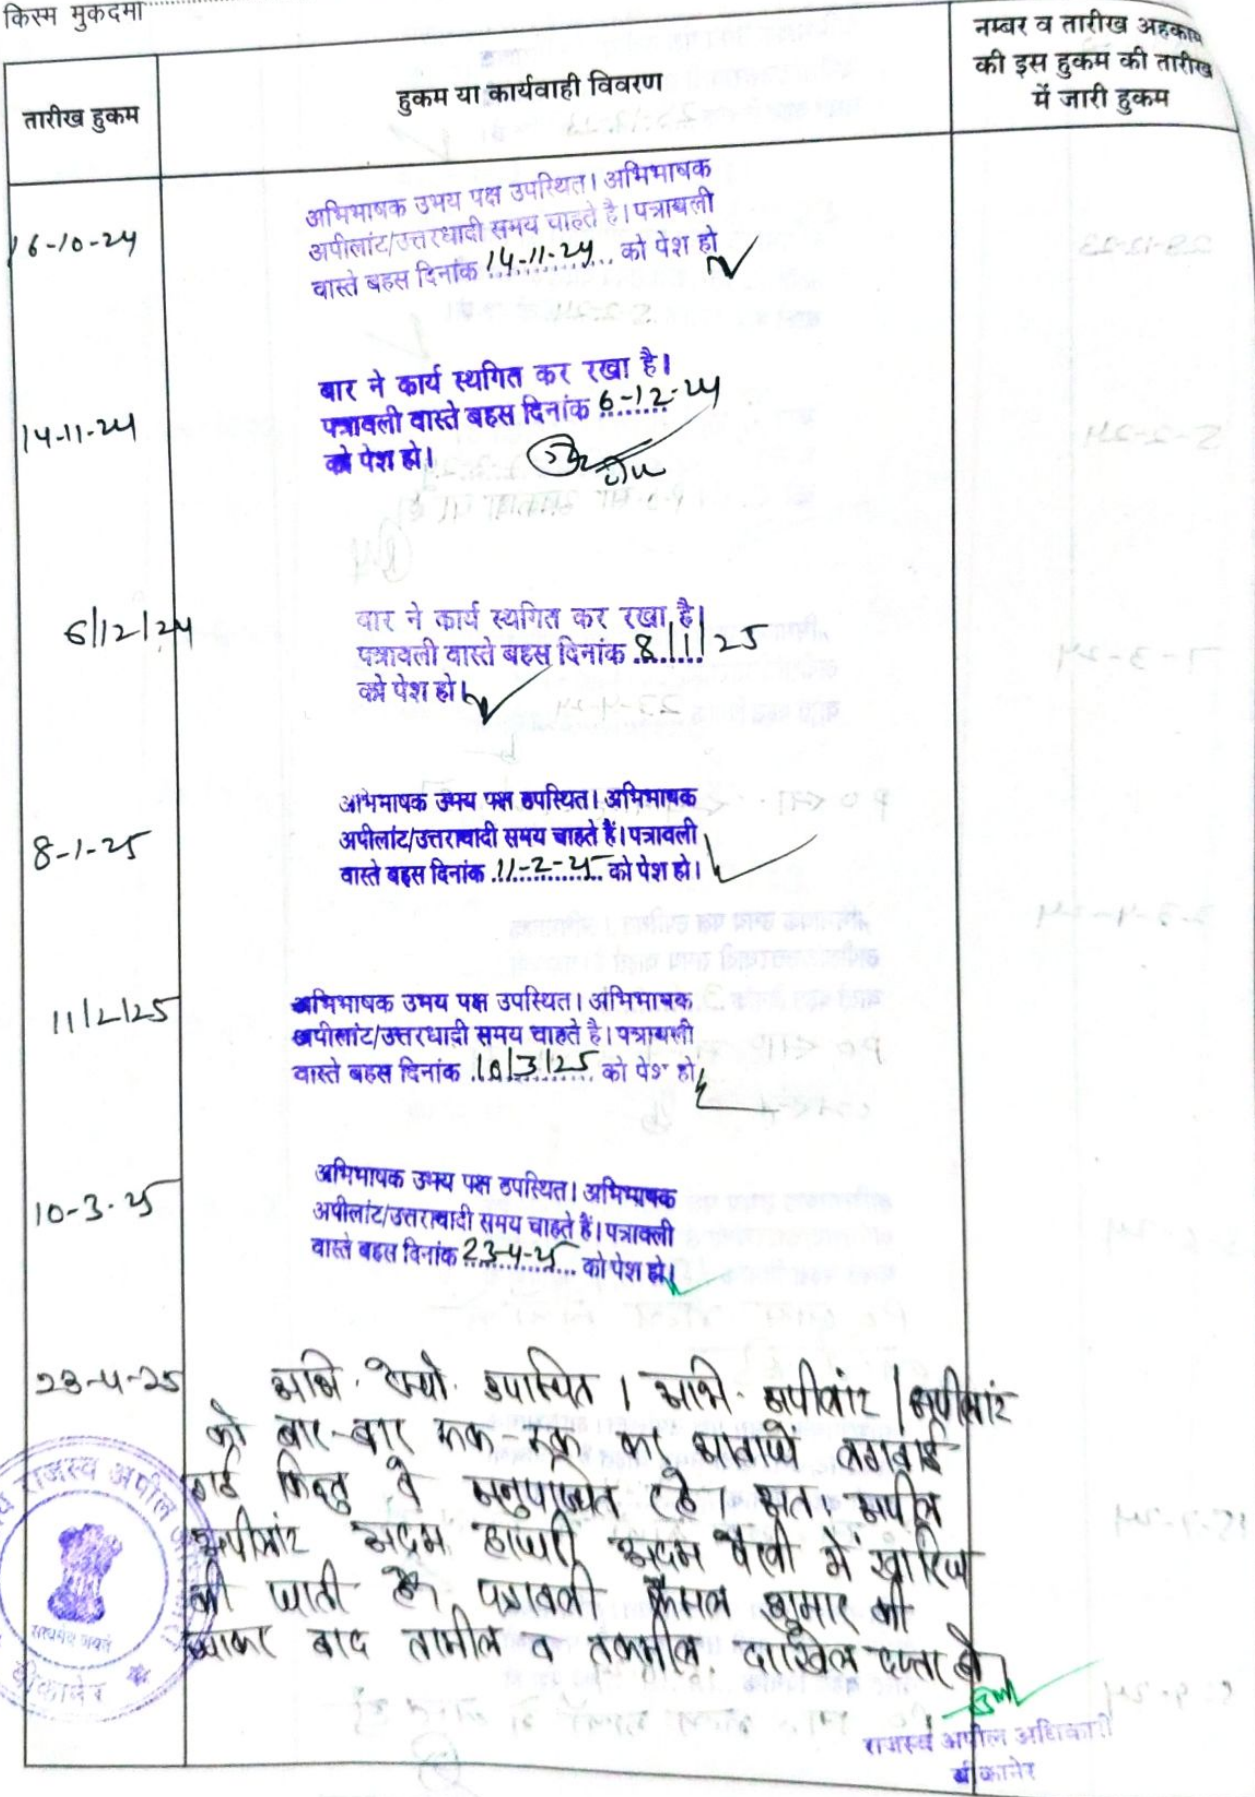 किस्म मुकदमा
तारीख हुकम
हुकम या कार्यवाही विवरण
नम्बर व तारीख अहकाम
की इस हुकम की तारीख
में जारी हुकम
16-10-24
अभिभाषक उभय पक्ष उपस्थित। अभिभाषक
अपीलांट/उत्तरधादी समय चाहते है। पत्रावली
वास्ते बहस दिनांक 14-11-24 को पेश हो
14-11-24
बार ने कार्य स्थगित कर रखा है।
पत्रावली वास्ते बहस दिनांक 6-12-24
को पेश हो।
6/12/24
बार ने कार्य स्थगित कर रखा है।
पत्रावली वास्ते बहस दिनांक 8/1/25
को पेश हो।
8-1-25
अभिभाषक उभय पक्ष उपस्थित। अभिभाषक
अपीलांट/उत्तरावादी समय चाहते हैं। पत्रावली
वास्ते बहस दिनांक 11-2-25 को पेश हो।
11/2/25
अभिभाषक उभय पक्ष उपस्थित। अभिभाषक
अपीलांट/उत्तरधादी समय चाहते है। पत्रावली
वास्ते बहस दिनांक 10/3/25 को पेश हो
10-3-25
अभिभाषक उभय पक्ष उपस्थित। अभिभाषक
अपीलांट/उत्तरावादी समय चाहते हैं। पत्रावली
वास्ते बहस दिनांक 23-4-25 को पेश हो।
23-4-25
अभि. उपस्थित। अभि. अपीलांट/अपीलांट
को बार-बार रूक-रूक कर आवाजे लगवाई
गई किन्तु वे अनुपस्थित रहे। अत अपील
अपीलांट अदम हाजरी अदम पैरवी में खारिज
की जाती है। पत्रावली फैसल शुमार की
जाकर बाद तामील व तकमील दाखिल दफ्तर हो।
राजस्व अपील
सत्यमेव जयते
बीकानेर
राजस्व अपील अधिकारी
बीकानेर